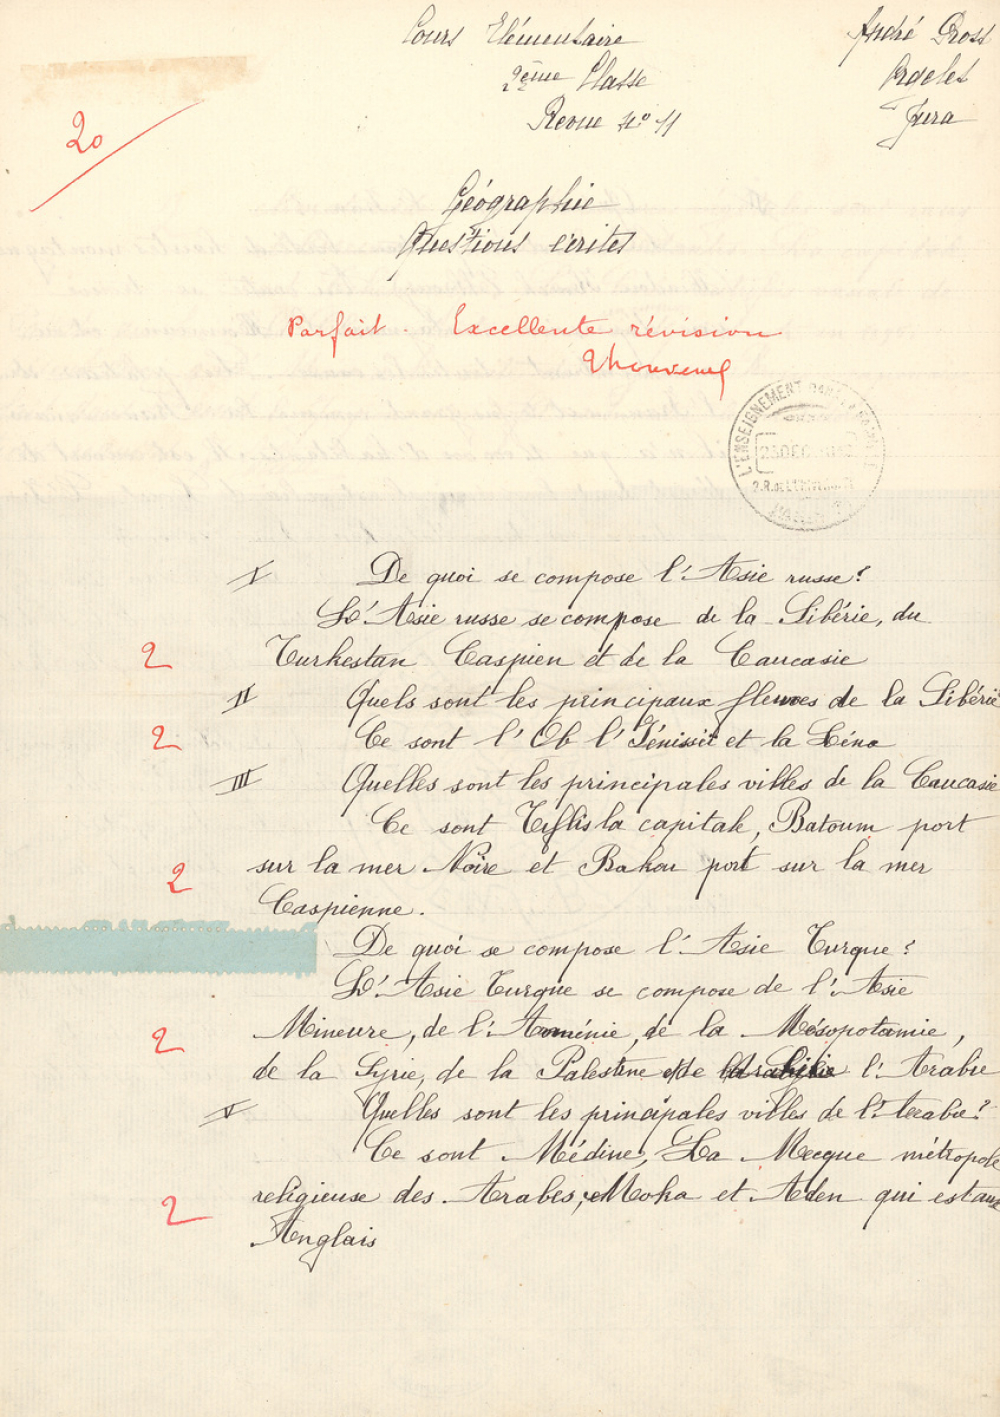 Cours Elémentaire
2ème Classe
Revue N° 11
André Gros
Orgelet
Jura
20
Géographie
Questions écrites
Parfait. Excellente révision
Thouvenel
L'ENSEIGNEMENT DANS LA FAMILLE
23 DEC
PARIS
I De quoi se compose l'Asie russe?
L'Asie russe se compose de la Sibérie, du
2 Turkestan Caspien et de la Caucasie
II Quels sont les principaux fleuves de la Sibérie
2 Ce sont l'Ob l'Iénisséi et la Léna
III Quelles sont les principales villes de la Caucasie
Ce sont Tiflis la capitale, Batoum port
2 sur la mer Noire et Bakou port sur la mer
Caspienne.
De quoi se compose l'Asie Turque?
L'Asie Turque se compose de l'Asie
2 Mineure, de l'Arménie, de la Mésopotamie,
de la Syrie, de la Palestine de l'Arabie
V Quelles sont les principales villes de l'Arabie?
Ce sont Médine, La Mecque métropole
2 religieuse des Arabes, Moka et Aden qui est aux
Anglais